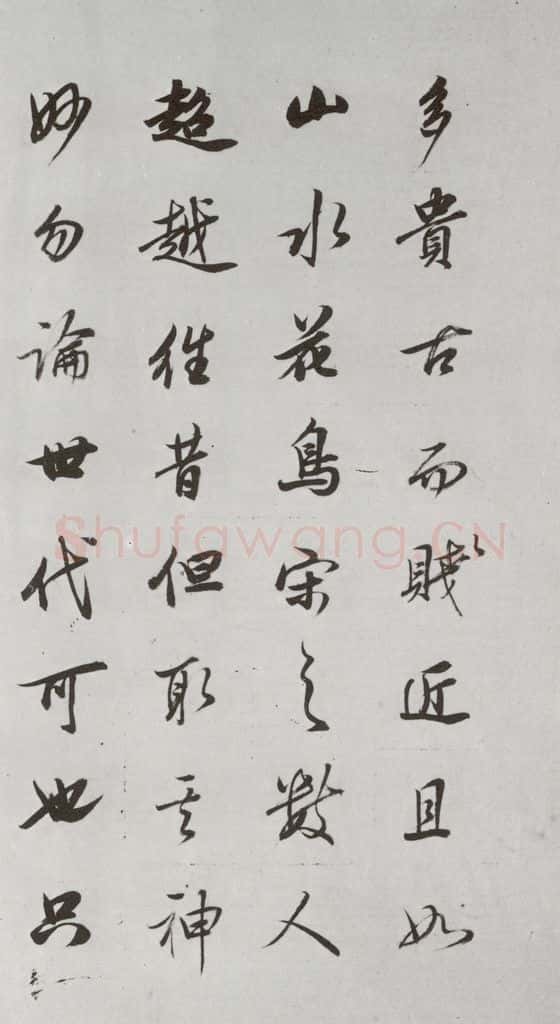 多貴古而賤近且如
山水花鳥宋之數人
超越往昔但取其神
妙勿論世代可也只
Shufawang.CN